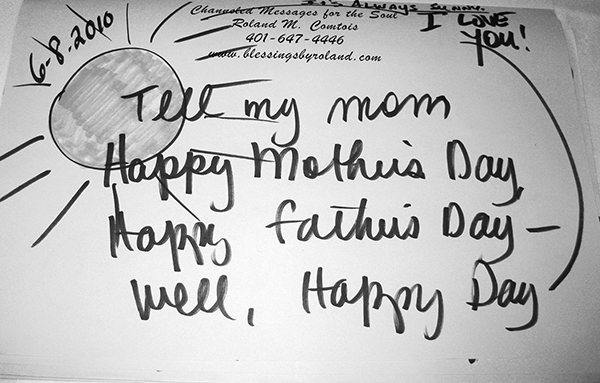 It's Always Sunny.
Channeled Messages for the Soul
Roland M. Comtois
401-647-4446
www.blessingsbyroland.com
I Love
You!
6-8-2010
Tell my mom
Happy Mother's Day,
Happy Father's Day –
well, Happy Day